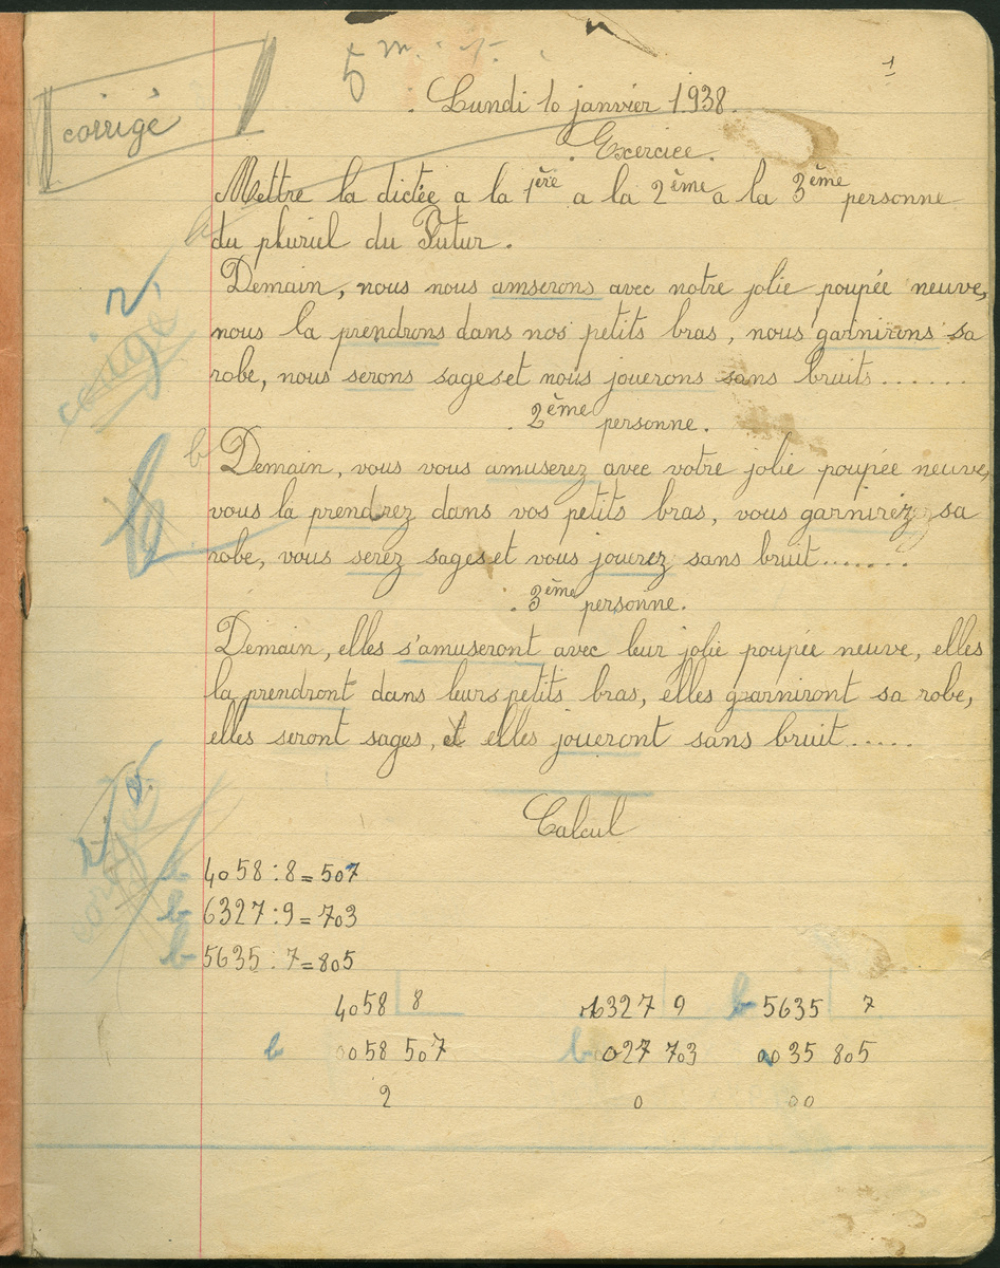 1
5 m.
corrigé
Lundi 10 janvier 1938.
Exercice.
Mettre la dictée a la 1ère a la 2ème a la 3ème personne
du pluriel du Futur.
Demain, nous nous amserons avec notre jolie poupée neuve,
nous la prendrons dans nos petits bras, nous garnirons sa
robe, nous serons sages et nous jouerons sans bruits.......
corrigé
2ème personne.
b Demain, vous vous amuserez avec votre jolie poupée neuve,
vous la prendrez dans vos petits bras, vous garnirez sa
robe, vous serez sages et vous jourez sans bruit.......
3ème personne.
Demain, elles s'amuseront avec leur jolie poupée neuve, elles
la prendront dans leurs petits bras, elles garniront sa robe,
elles seront sages, et elles joueront sans bruit.....
corrigé
Calcul
b 4058 : 8 = 507
b 6327 : 9 = 703
b 5635 : 7 = 805
4058 8 6327 9 b 5635 7
b 0058 507 b 027 703 0035 805
2 0 00